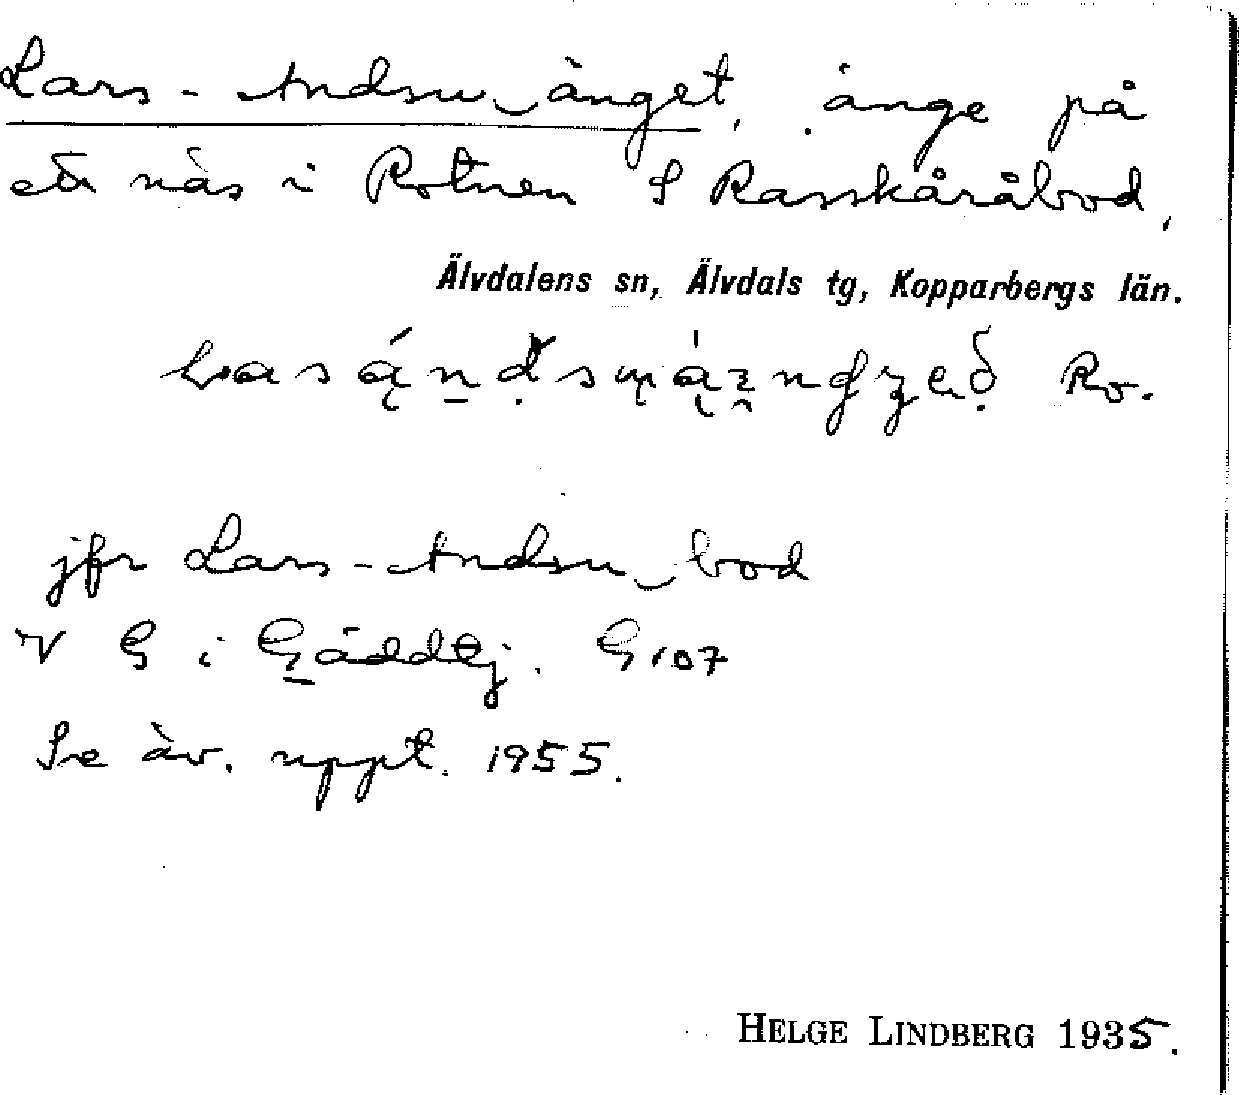 Lars-Andsu_änget, änge på
ett näs i Rotnen S Rasskåråbod,
Älvdalens sn, Älvdals tg, Kopparbergs län.
Ro.
jfr Lars-Andsu_bod
V G i Gäddtj. G 107
Se äv. uppt. 1955.
HELGE LINDBERG 1935.